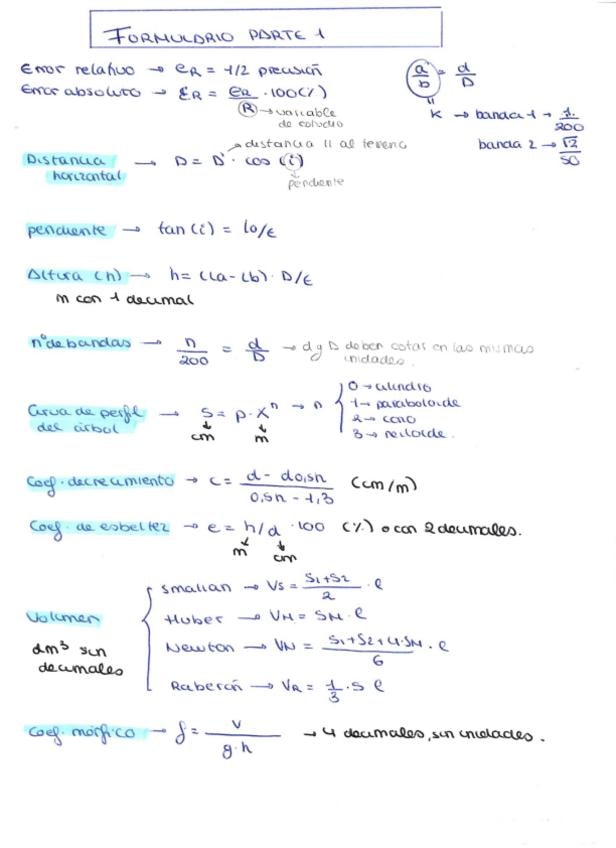 FORMULARIO PARTE 1
Error relativo → eR = 1/2 precisión
Error absoluto → ƐR = eR/R · 100 (%)
R → variable de estudio
a/b = d/D
K → banda 1 → 1/200
banda 2 → √2/50
Distancia horizontal → D = D' · cos (i)
distancia || al terreno
pendiente
pendiente → tan(i) = lo/E
Altura (h) → h = (la - lb) · D/E
m con 1 decimal
nº de bandas → n/200 = d/D → d y D deben estar en las mismas unidades.
Curva de perfil del árbol → S = p · Xⁿ → n
cm
m
0 → cilindro
1 → paraboloide
2 → cono
3 → neiloide.
Coef. decrecimiento → c = d - d0,5h / 0,5h - 1,3 (cm/m)
Coef. de esbeltez → e = h/d · 100 (%) o con 2 decimales.
m
cm
Volumen
dm³ sin decimales
Smalian → Vs = S1+S2/2 · l
Huber → VH = SM · l
Newton → VN = S1+S2+4·SM/6 · l
→ VR = 1/3 · S l
Coef. mórfico → f = v/g·h → 4 decimales, sin unidades.